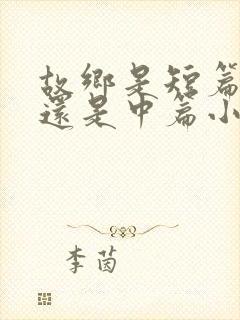 故鄉是短篇
還是中篇小
李茵